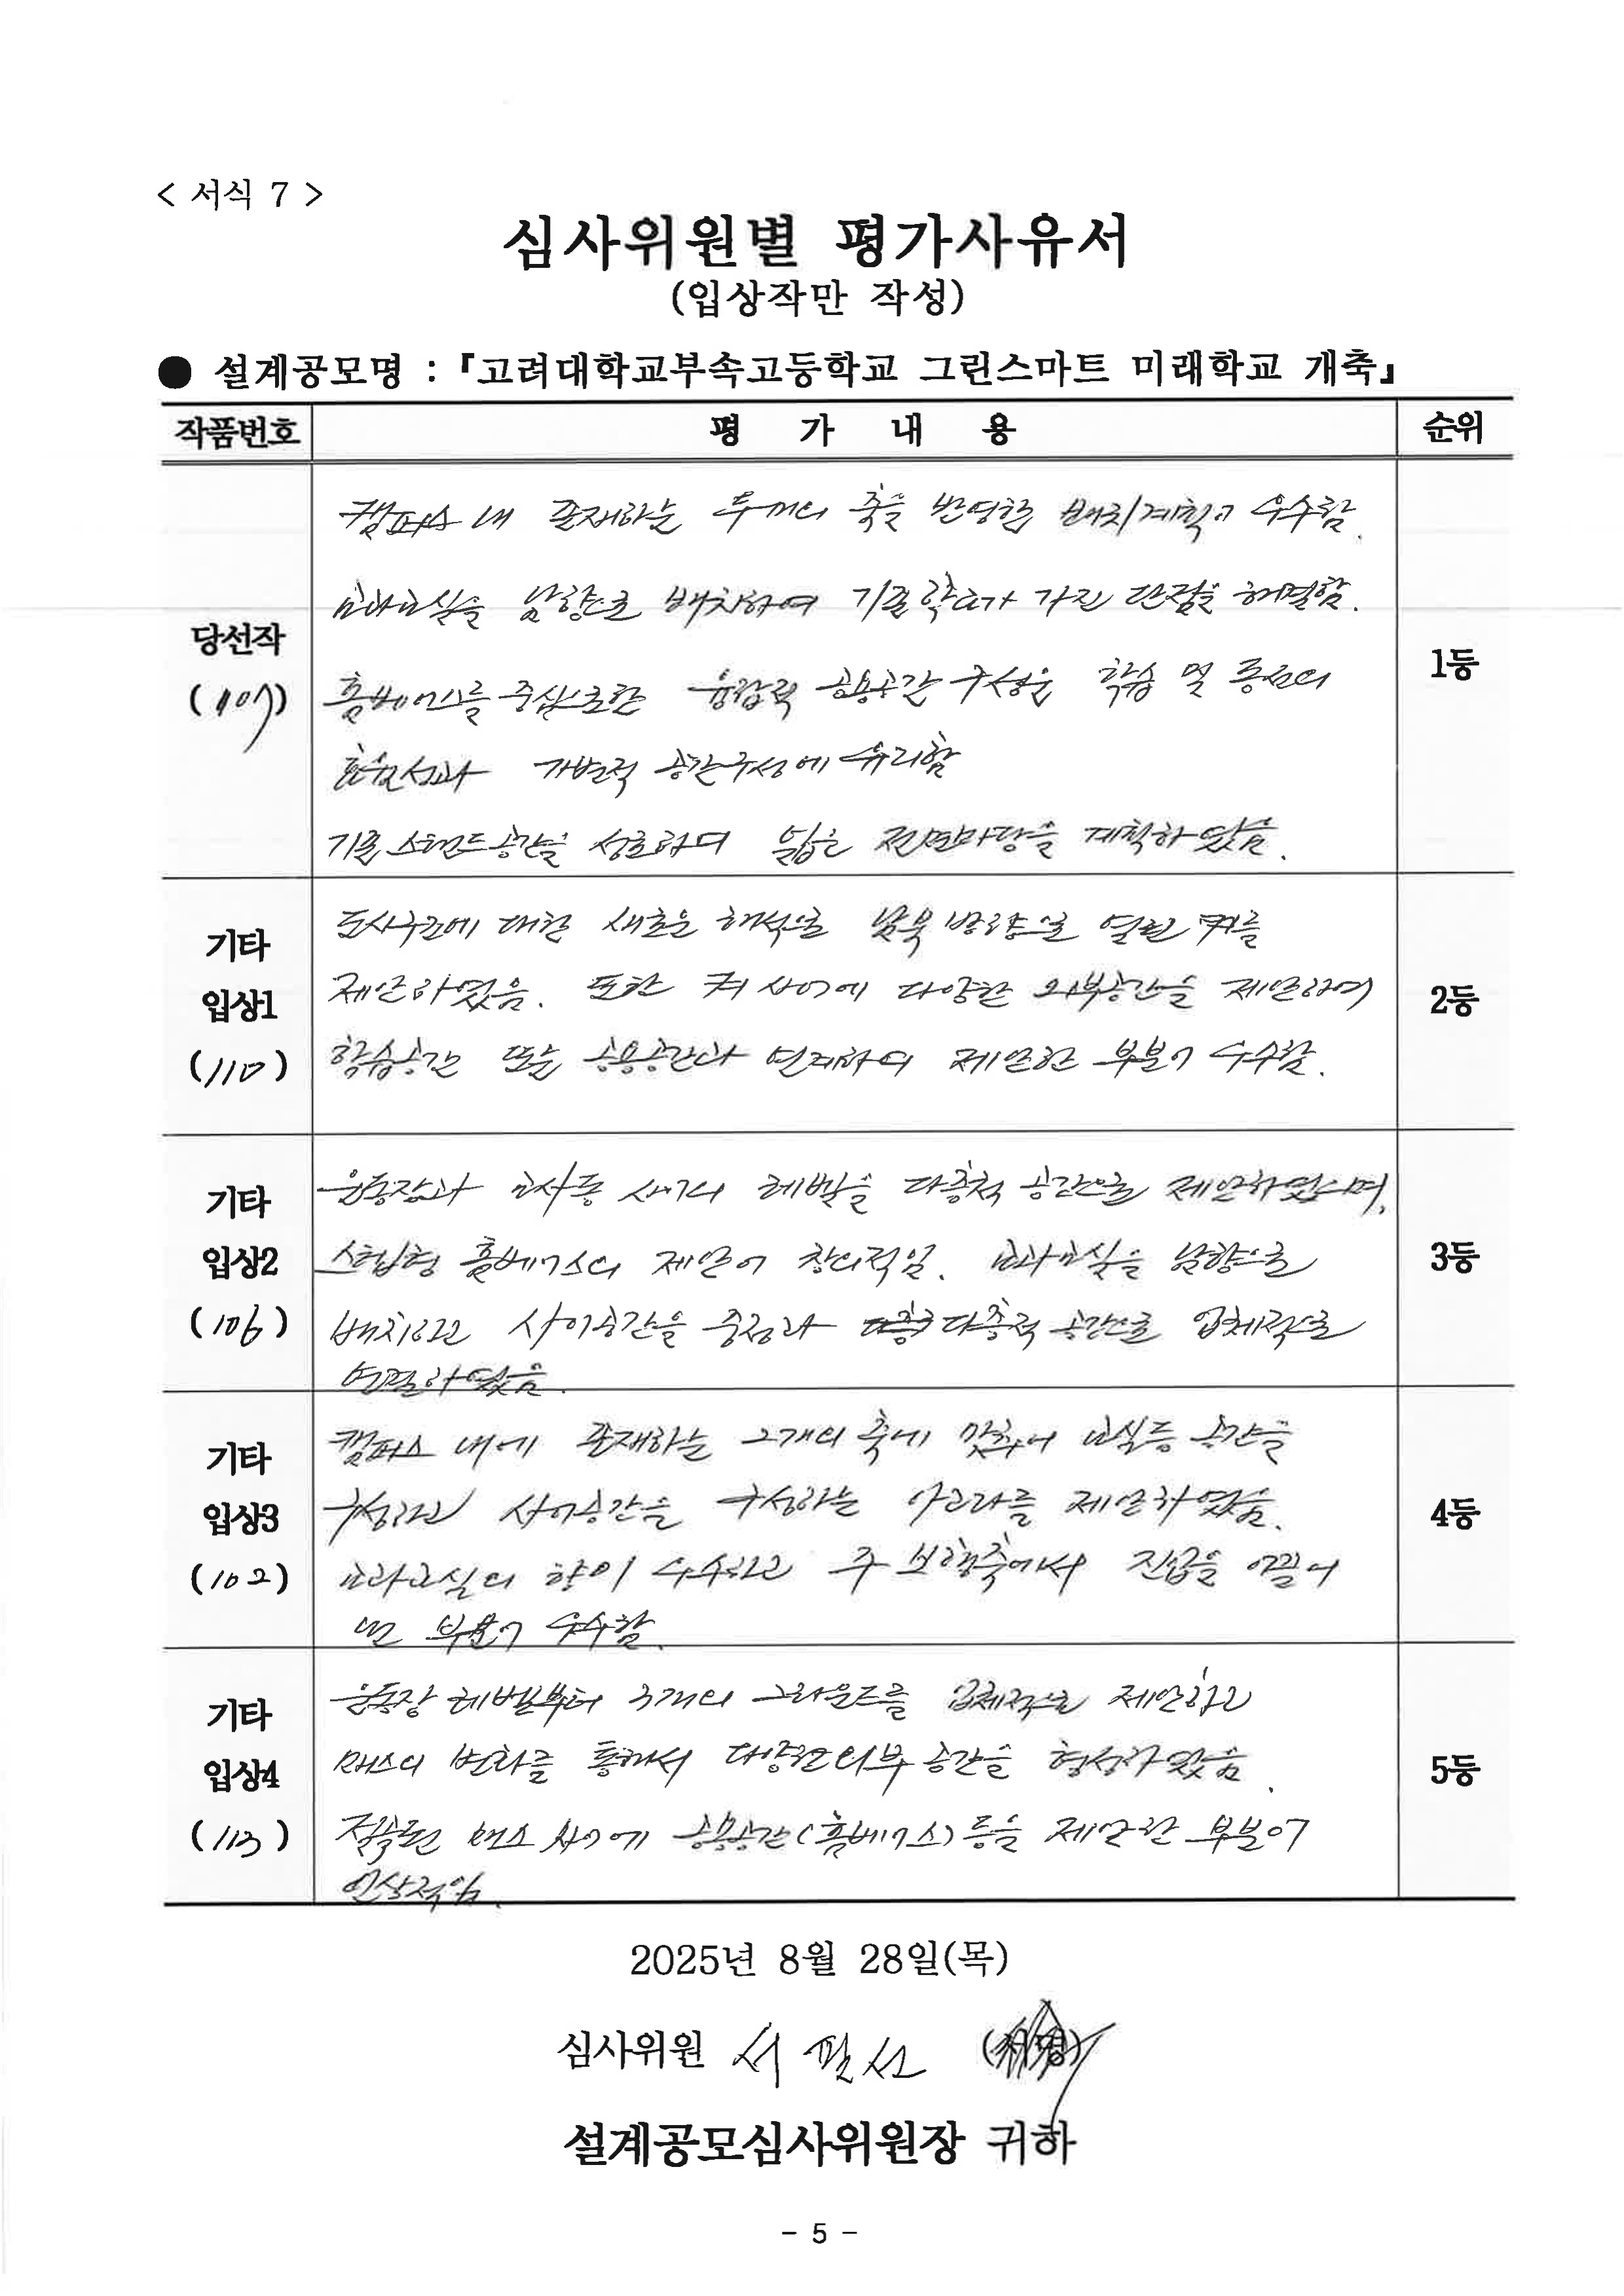 < 서식 7 >
심사위원별 평가사유서
(입상작만 작성)
● 설계공모명 : 『고려대학교부속고등학교 그린스마트 미래학교 개축』
작품번호 평 가 내 용 순위
당선작
(107)
캠퍼스 내 존재하는 두개의 축을 반영한 배치계획이 우수함.
교과교실을 남향으로 배치하여 기존학교가 가진 단점을 해결함.
홈베이스를 중심으로한 융합적 공용공간 구성은 학습 및 동선의
효율성과 가변적 공간구성에 유리함
기존 스탠드공간을 성토하여 넓은 전면마당을 계획하였음.
1등
기타
입상1
(110)
도시구조에 대한 새로운 해석으로 남북 방향으로 열린 켜를
제안하였음. 또한 켜 사이에 다양한 외부공간을 제안하여
학습공간 또는 공용공간과 연계하여 제안한 부분이 우수함.
2등
기타
입상2
(106)
운동장과 교사동 사이의 레벨을 다층적 공간으로 제안하였으며,
스텝형 홈베이스의 제안이 창의적임. 교과교실을 남향으로
배치하고 사이공간을 중정과 다층적 공간으로 입체적으로
연결하였음.
3등
기타
입상3
(102)
캠퍼스 내에 존재하는 2개의 축에 맞추어 교실등 공간을
구성하고 사이공간을 구성하는 아고라를 제안하였음.
교과교실의 향이 우수하고 주 보행축에서 진입을 이끌어
낸 부분이 우수함.
4등
기타
입상4
(113)
운동장 레벨부터 3개의 그라운드를 입체적으로 제안하고
매스의 변화를 통해서 다양한 외부 공간을 형성하였음.
접속된 매스 사이에 공용공간(홈베이스) 등을 제안한 부분이
인상적임.
5등
2025년 8월 28일(목)
심사위원 서필선 (서명)
설계공모심사위원장 귀하
- 5 -